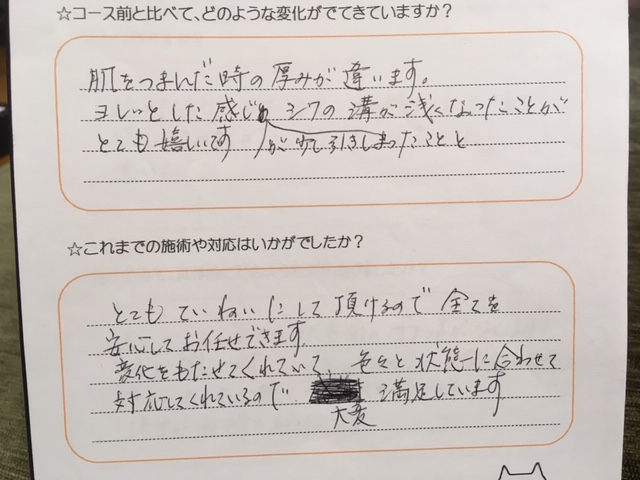 ☆コース前と比べて、どのような変化がでてきていますか?
肌をつまんだ時の厚みが違います。
ヨレッとした感じ シワの溝が浅くなったことが
とても嬉しいです が少し引きしまったことと
☆これまでの施術や対応はいかがでしたか?
とてもていねいにして頂けるので全てを
安心してお任せできます
変化をもたせてくれていて、色々と状態に合わせて
対応してくれているので 満足しています
大変